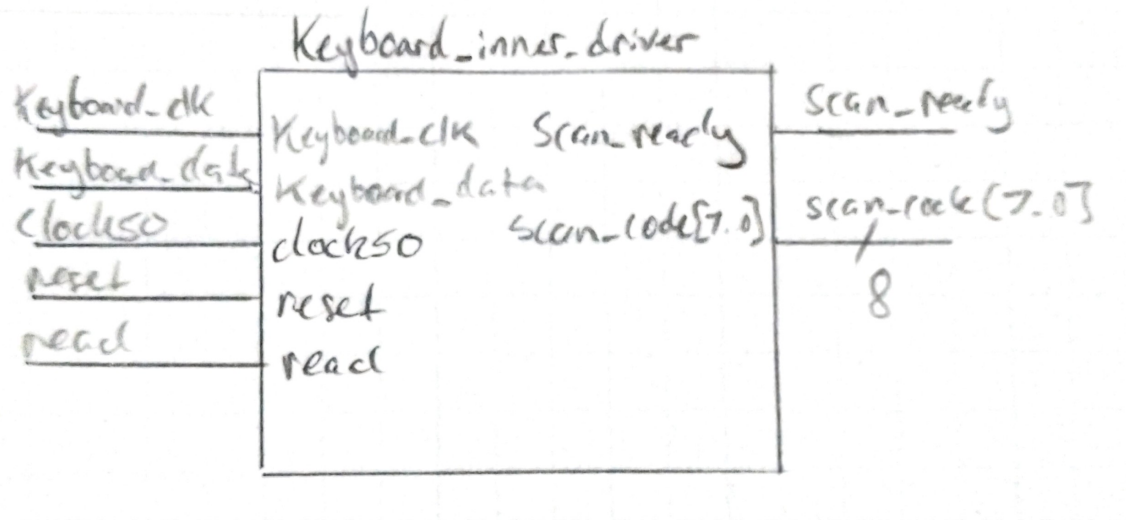 Keyboard_inner_driver
Keyboard_clk
Keyboard_data
Clock50
reset
read
Keyboard_clk
Keyboard_data
clock50
reset
read
Scan_ready
scan_code[7.0]
scan_ready
scan_code[7.0]
8